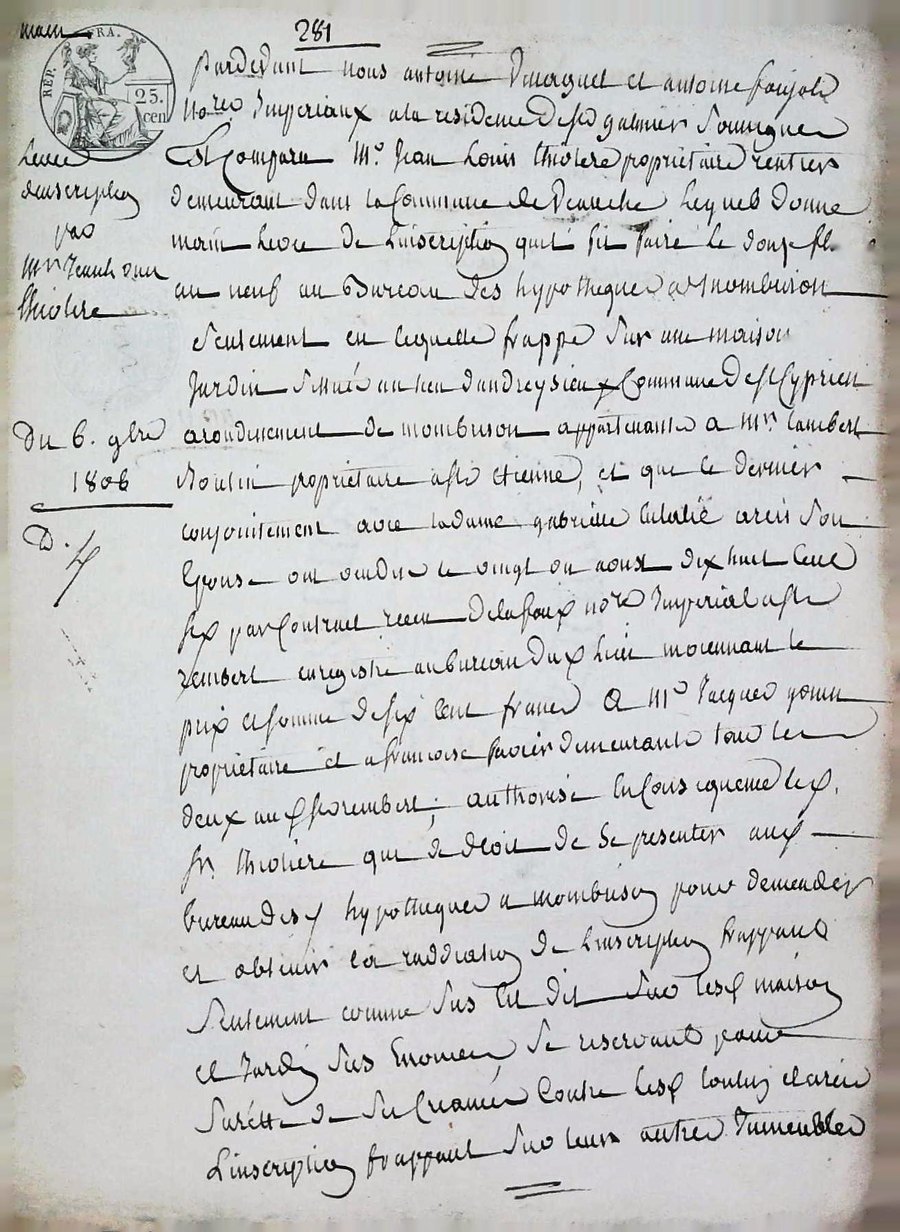 281
main
RÉP. FRA.
25.
cen
Levée
dinscription
par
Mr Jean Louis
thiolere
Du 6. 9bre
1806
D.
pardevant nous antoine et antoine
Nores Imperiaux a la residence de st galmier soussignes
Est Comparu Mr. Jean Louis thiolere propriétaire rentier
demeurant dans la Commune de Veauche lequel donne
main levée de linscription quil fit faire le douze fl.
an neuf au Bureau des hypotheques a Mombrison
seulement en lequelle frappe sur une maison
Jardin situé au lieu dandreysieux Commune de st Cyprien
arondissement de mombrison appartenante a Mr. Lambert
propriétaire a st Etienne, et que ce dernier
conjointement avec la dame gabrielle Eulalie son
Epouse ont vendu le vingt un aoust dix huit Cent
six par Contrat recu Delafaux nore Imperial a st
rembert enregistré au bureau dud lieu moiennant le
prix et somme de six Cent francs a Mr Jacques
propriétaire et a francoise demeurants tous les
deux aud st rembert; authorise En Consequence led.
sr. thioliere qui de droit de se presenter aud
bureau des hypotheques a mombrison pour demander
et obtenir la raddiation de linscription frappant
seulement comme sus Est dit sur lesd maison
et Jardin sus Enoncés, se reservant pour
surétté de ses Creances Contre lesd et
Linscription frappant sur leurs autres Immeubles